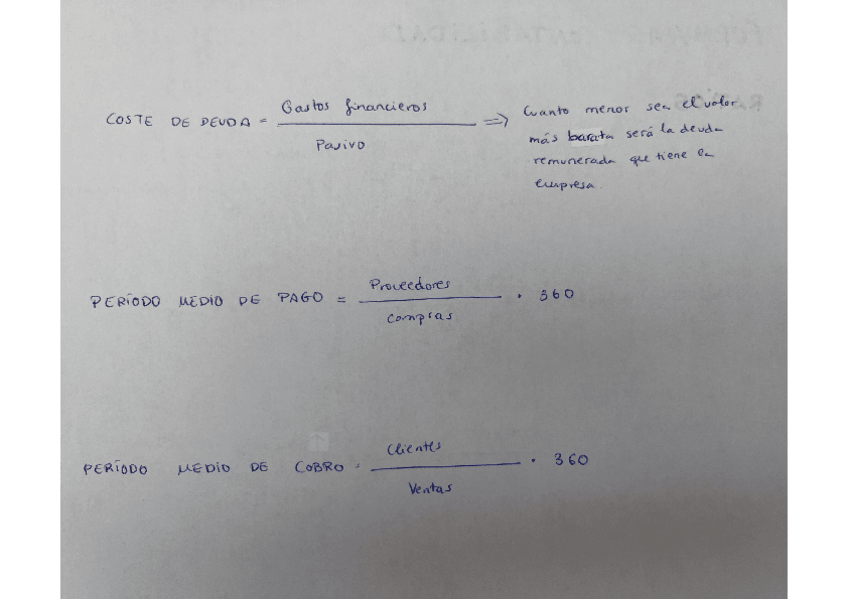 COSTE DE DEUDA = Gastos financieros / Pasivo => Cuanto menor sea el valor
más barata será la deuda
remunerada que tiene la
empresa.
PERÍODO MEDIO DE PAGO = Proveedores / Compras · 360
PERÍODO MEDIO DE COBRO = Clientes / Ventas · 360